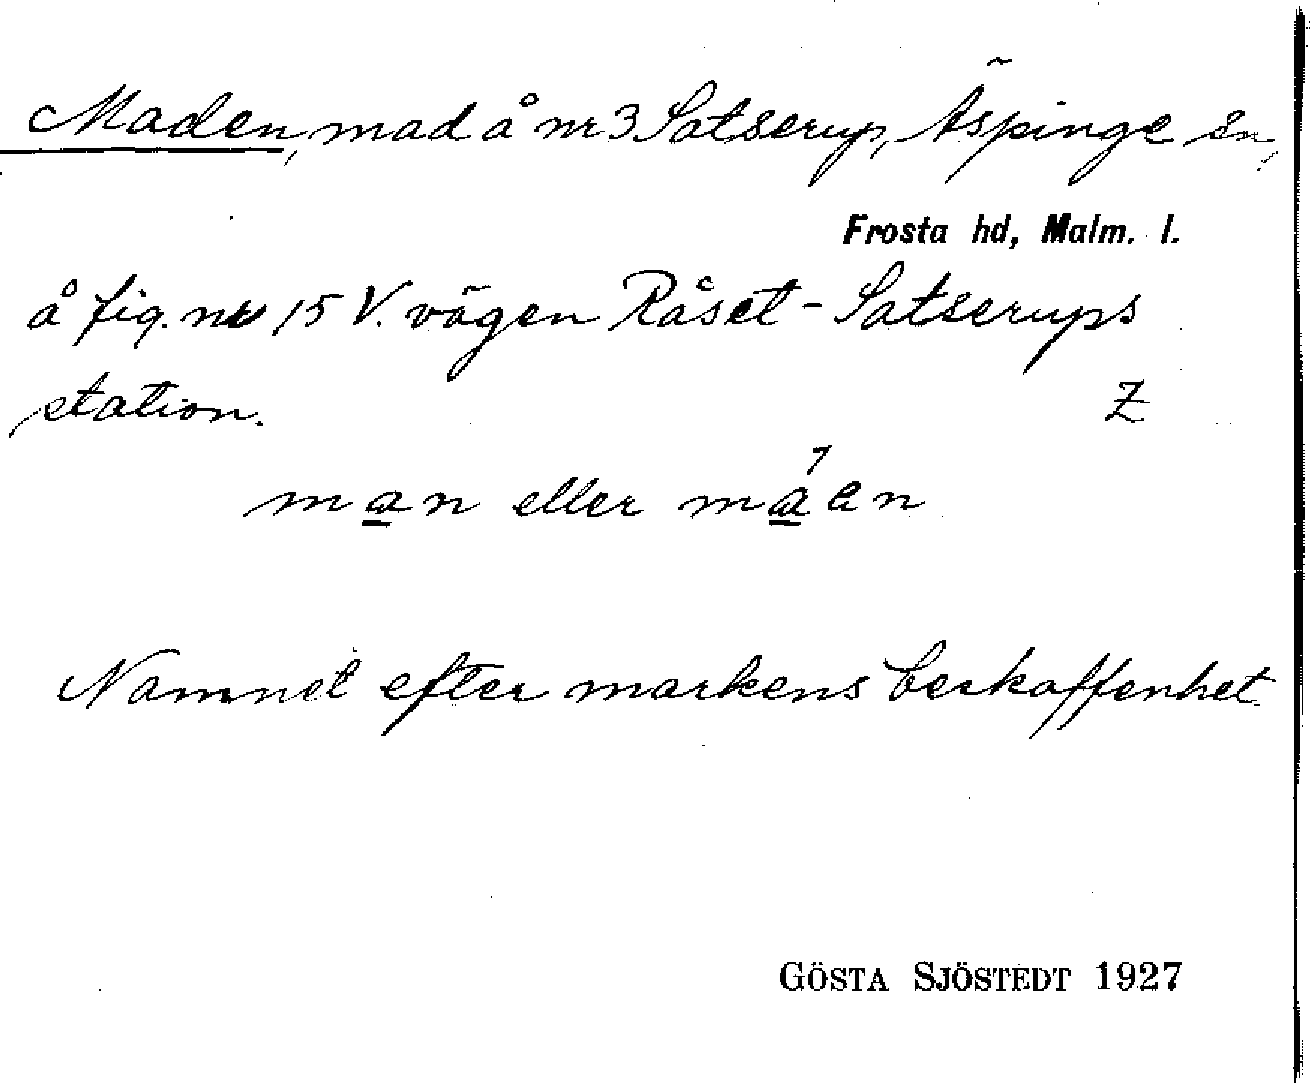 Maden, mad å nr 3 Satserup, Äspinge sn,
Frosta hd, Malm. l.
å fig. nr 15 V. vägen Råset - Satserups
station. Z
man eller máen
Namnet efter markens beskaffenhet.
GÖSTA SJÖSTEDT 1927